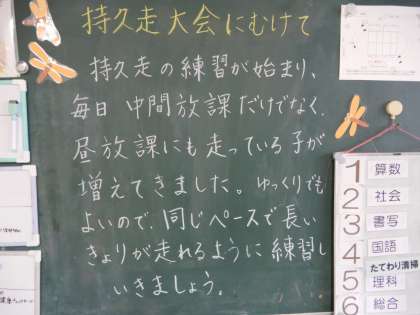 持久走大会にむけて
持久走の練習が始まり、
毎日 中間放課だけでなく、
昼放課にも走っている子が
増えてきました。ゆっくりでも
よいので、同じペースで長い
きょりが走れるように練習し
いきましょう。
1 算数
2 社会
3 書写
4 国語
たてわり清掃
5 理科
6 総合